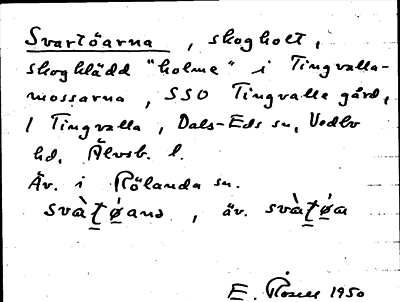 Svartöarna, skogholt,
skogklädd "holme" i Tingvalla-
mossarna, SSO Tingvalla gård,
1 Tingvalla, Dals-Eds sn, Vedbo
hd, Älvsb. l.
Äv. i Rölanda sn.
svàt̲ø̲anə, äv. svàt̲ø̲a
E. Rosell 1950